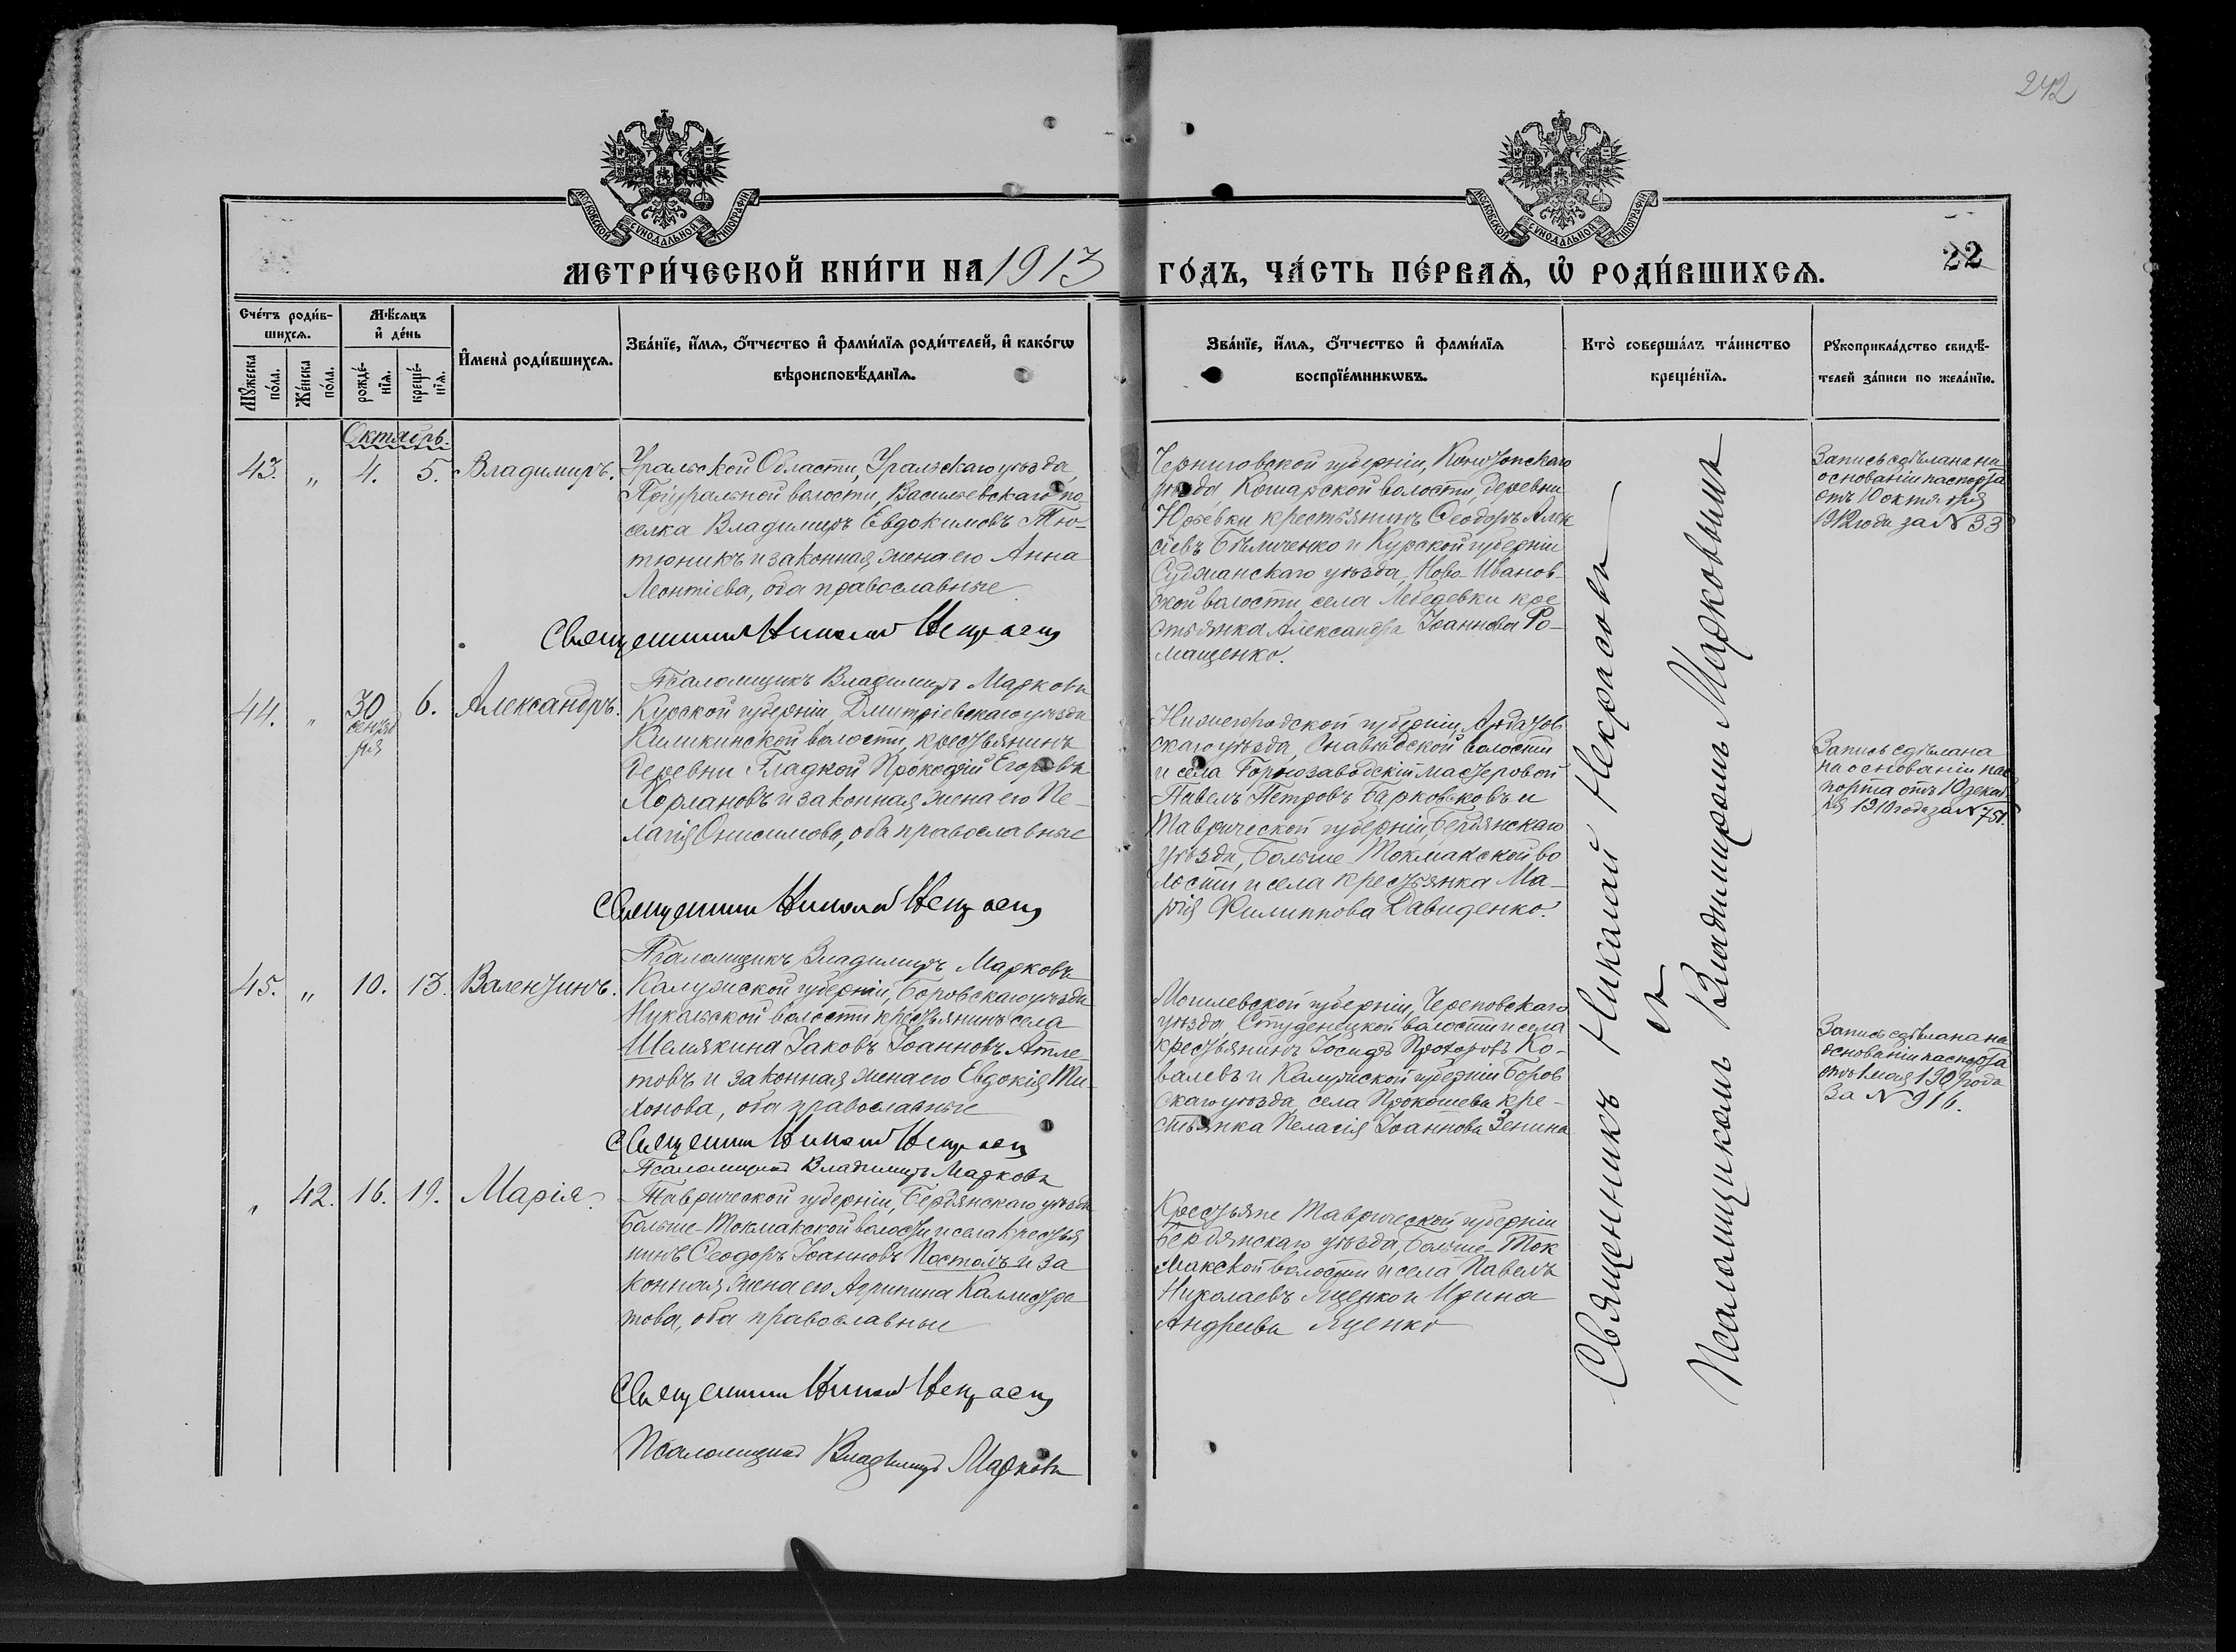 242
МОСКОВСКОЙ СѴНОДАЛЬНОЙ ТИПОГРАФІИ
МОСКОВСКОЙ СѴНОДАЛЬНОЙ ТИПОГРАФІИ
МЕТРИ́ЧЕСКОЙ КНИ́ГИ НА 1913 ГО́ДЪ, ЧА́СТЬ ПЕ́РВАѦ, Ѡ҆ РОДИ́ВШИХСѦ.
22
Сче́тъ роди́в-
шихсѧ.
Мꙋ́жеска
по́ла.
Же́нска
по́ла.
Мѣ́сѧцъ
и҆ де́нь
рожде́-
нїѧ.
креще́-
нїѧ.
И҆мена̀ роди́вшихсѧ.
Зва́нїе, и҆́мѧ, ѻ҆́тчество и҆ фами́лїѧ роди́телей, и҆ како́гѡ
вѣроисповѣ́данїѧ.
Зва́нїе, и҆́мѧ, ѻ҆́тчество и҆ фами́лїѧ
воспрїе́мникѡвъ.
Кто̀ соверша́лъ та́инство
креще́нїѧ.
Рꙋкоприкла́дство свидѣ́-
телей за́писи по жела́нїю.
Октябрь.
43. „ 4. 5. Владимиръ.
Уральской Области, Уральскаго уѣзда,
Пріуральной волости, Васильевскаго по-
селка Владимиръ Евдокимовъ Тю-
тюникъ и законная жена его Анна
Леонтіева, оба православные
Священникъ Николай Некрасовъ
Псаломщикъ Владимиръ Марковъ
Черниговской губерніи, Конотопскаго
уѣзда Кошарской волости, деревни
Юрьевки крестьянинъ Ѳеодоръ Алек
сіевъ Бѣличенко и Курской губерніи
Суджанскаго уѣзда, Ново-Иванов-
ской волости села Лебедевки кре
стьянка Александра Іоаннова Ро-
мащенко.
Запись сдѣлана на
основаніи паспорта
отъ 10 октября
1912 года за № 33
44. „ 30 сентяб
ря 6. Александръ.
Курской губерніи, Дмитріевскаго уѣзда
Киликинской волости, крестьянинъ
деревни Гладкой Прокофій Егоровъ
Хорлановъ и законная жена его Пе-
лагія Онисимова, оба православные
Священникъ Николай Некрасовъ
Псаломщикъ Владимиръ Марковъ
Нижегородской губерніи, Ардатов
скаго уѣзда, Снавѣдской волости
и села Горнозаводскій мастеровой
Павелъ Петровъ Барковсковъ и
Таврической губерніи, Бердянскаго
уѣзда, Больше-Токмакской во
лости и села крестьянка Ма-
рія Филиппова Давиденко.
Запись сдѣлана
на основаніи пас
порта отъ 10 декаб
ря 1910 года за № 751.
45. „ 10. 13. Валентинъ.
Калужской губерніи, Боровскаго уѣзда
волости крестьянинъ села
Шемякина Іаковъ Іоанновъ Атле-
товъ и законная жена его Евдокія Ти-
хонова, оба православные
Священникъ Николай Некрасовъ
Псаломщикъ Владимиръ Марковъ
Могилевской губерніи, Чериковскаго
уѣзда, Студенецкой волости и села
крестьянинъ Іосифъ Прохоровъ Ко-
валевъ и Калужской губерніи Боров
скаго уѣзда села Прокошева кре-
стьянка Пелагія Іоаннова Зенина
Запись сдѣлана на
основаніи паспорта
отъ 1 мая 1909 года
За № 916.
„ 42. 16. 19. Марія.
Таврической губерніи, Бердянскаго уѣзда
Больше-Токмакской волости и села крестья
нинъ Ѳеодоръ Іоанновъ Посталъ и за
конная жена его Агрипина Каллистра
това, оба православные
Священникъ Николай Некрасовъ
Псаломщикъ Владимиръ Марковъ
Крестьяне Таврической губерніи
Бердянскаго уѣзда, Больше-Ток
макской волости и села Павелъ
Николаевъ Яценко и Ирина
Андреева Яценко
Священникъ Николай Некрасовъ
съ
Псаломщикомъ Владимиромъ Марковымъ